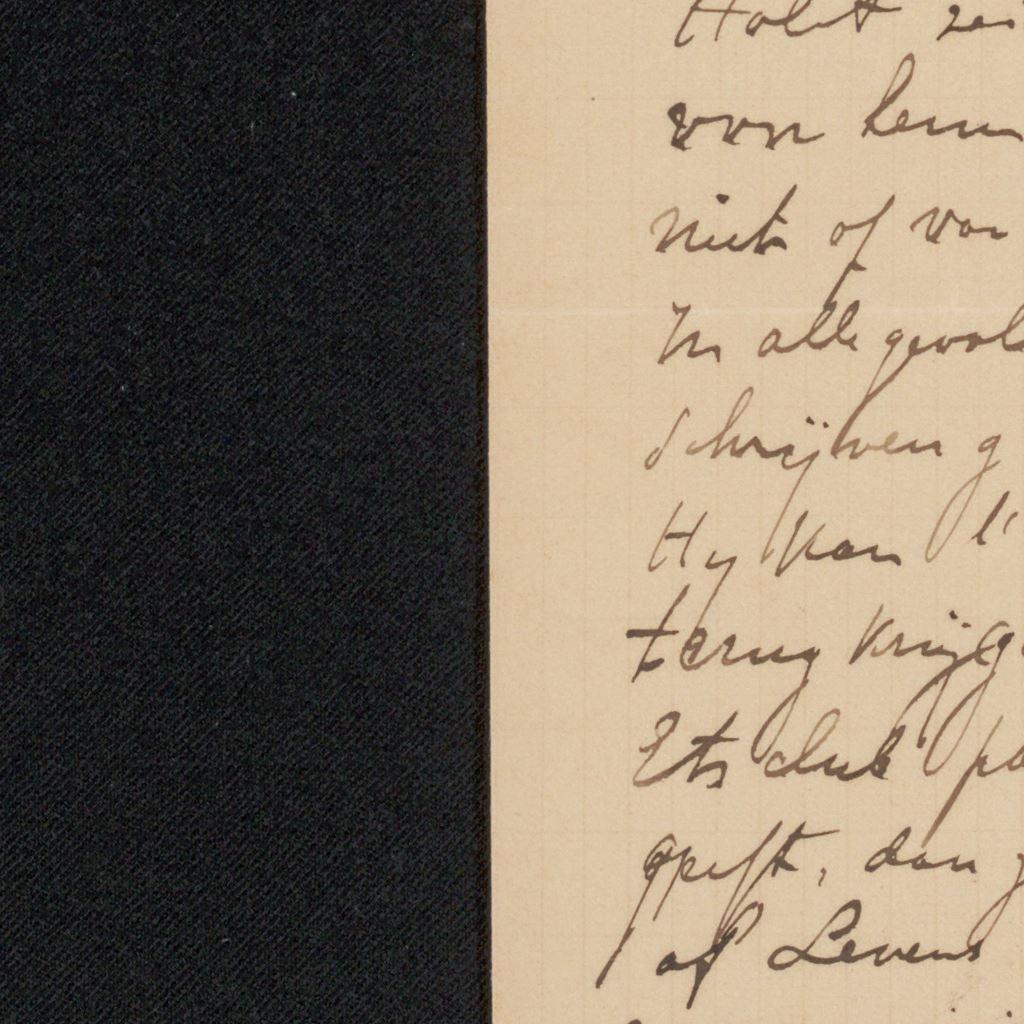 Holst
van hem
niet of van
In alle geval
schrijven g
Hy kan
terug krijg
Ets club
geeft, dan
of Levens